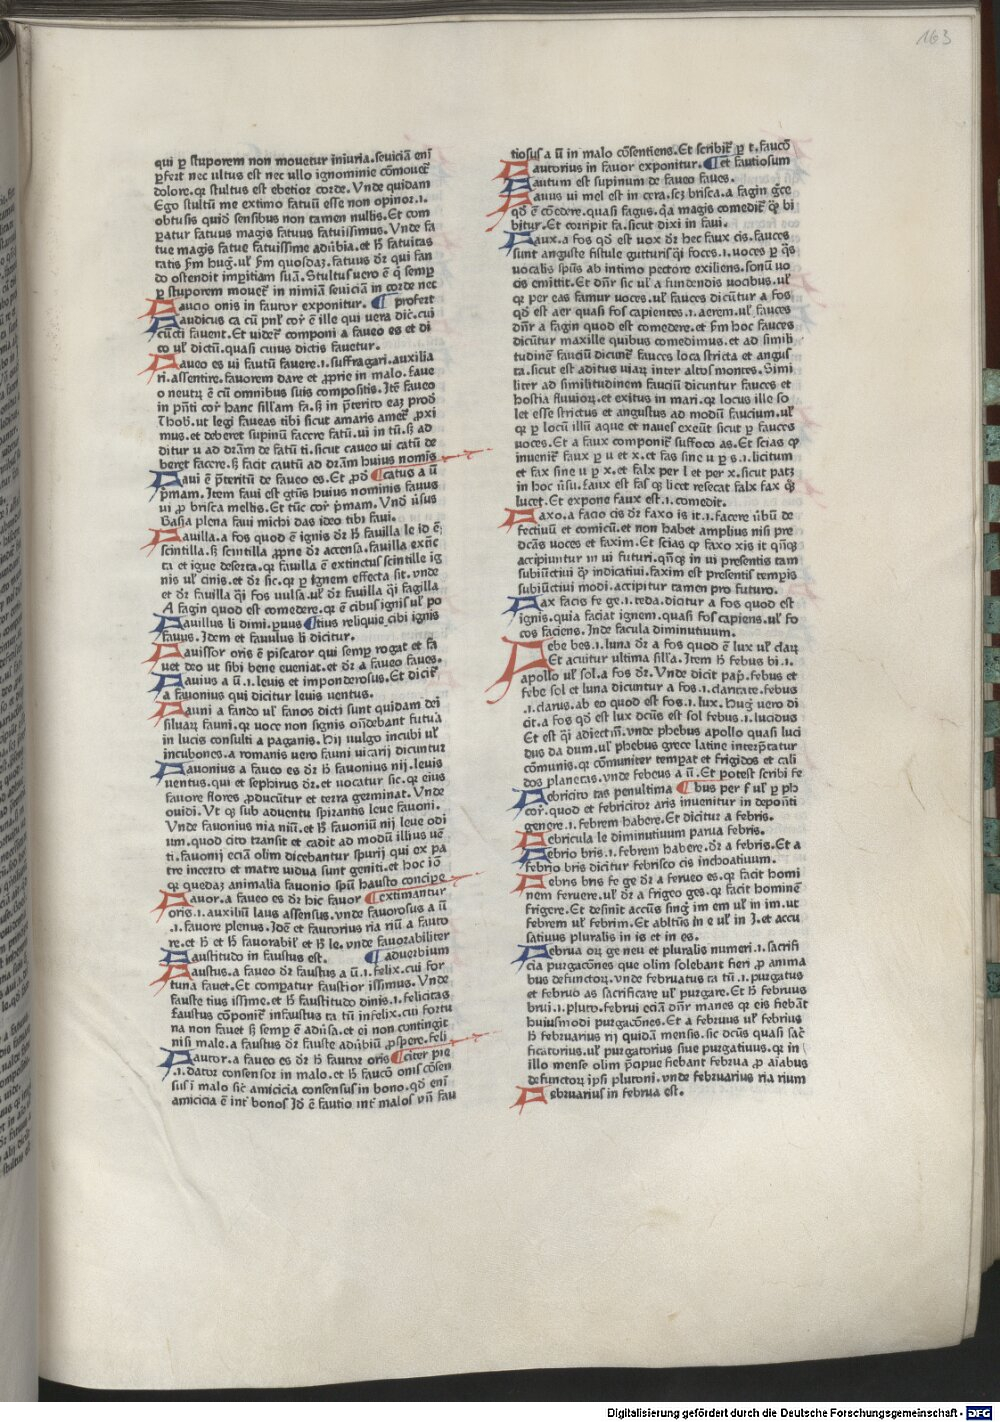 163
qui ꝑ stuporem non mouetur iniuria. seuiciā eni
ꝑfert nec ultus est nec ullo ignominie cōmouet᷑
dolore. qꝛ stultus est ebetior corde. Vnde quidam
Ego stultū me extimo fatuū esse non opinor. i.
obtusis quid sensibus non tamen nullis. Et com
ꝑatur fatuus magis fatuus fatuissimus. Vnde fa
tue magis fatue fatuissime aduerbia. et fatuitas
tatis fatuus qui fan
do ostendit imꝑitiam suā. Stultus uero ē qͥ semꝑ
ꝑ stuporem mouet᷑ in nimiā seuiciā in corde nec
Faucio onis in fautor exponitur. ¶ profert
Faudicus ca cū ē ille qui uera dic. cui
cūcti fauent. Et uidet᷑ componi a faueo es et di
co ul᷑ dictū. quasi cuius dictis fauetur.
Faueo es ui fautū fauere. i. suffragari. auxilia
ri. assentire. fauorem dare et ꝓprie in malo. faue
o neutꝝ ē cū omnibus suis compositis. Itē faueo
in cor hanc sillam fa. in pͥterito eaꝫ
ut legi faueas tibi sicut amaris amet᷑ ꝓxi
mus. et deberet supinū facere fatū. ui in tū. ad
ditur u ad dr̄am de fatū ti. sicut caueo ui catū de
beret facere. facit cautū ad dr̄am huius nomis
Faui ē pͥteritū de faueo es. Et ¶ catus a ū
pͥmam. Item faui est huius nominis fauus
ui ꝓ brisca mellis. Et tūc pͥmam. Vnd uersus
Basia plena faui michi das ideo tibi faui.
Fauilla. a fos quod ē ignis dr̄ fauilla le id ē
scintilla. scintilla ꝓprie dr̄ accensa. fauilla
ta et igne deserta. qꝛ fauilla ē extinctus scintille ig
nis ul᷑ cinis. et dr̄ sic. qꝛ ꝑ ignem effecta sit. vnde
et dr̄ fauilla qͥi fos uulsa. ul᷑ dr̄ fauilla qͥi fagilla
A fagin quod est comedere. qꝛ ē cibus ignis ul᷑ po
Fauillus li dimi. ꝑuus ¶ tius reliquie cibi ignis
fauus. Idem et fauulus li dicitur.
Fauissor oris ē piscator qui semꝑ rogat et fa
uet deo ut sibi bene eueniat. et dr̄ a faueo faues.
Fauius a ū. i. leuis et imponderosus. Et dicit᷑
a fauonius qui dicitur leuis uentus.
Fauni a fando ul᷑ fanos dicti sunt quidam dei
siluaꝝ fauni. qꝛ uoce non signis ondebant futura
in lucis consulti a paganis. Hij uulgo incubi ul᷑
incubones. a romanis uero fauni uicarij dicuntur
Fauonius a faueo es dr̄ fauonius nij. leuis
uentus. qui et sephirus dr̄. et uocatur sic. qꝛ eius
fauore flores ꝓducūtur et terra germinat. Vnde
ouidi. Vt sub aduentu spirantis leue fauoni.
Vnde fauonius nia niū. et fauoniū nij leue odi
um. quod cito transit et cadit ad modū illius uē
ti. fauonij eciā olim dicebantur spurij qui ex pa
tre incerto et matre uidua sunt geniti. et hoc iō
qꝛ quedaꝫ animalia fauonio spū hausto concipe
Fauor. a faueo es dr̄ hic fauor ¶ extimantur
oris. i. auxiliū laus assensus. vnde fauorosus a ū
.i. fauore plenus. Idē et fautorius ria riū a fauto
re. et fauorabil᷑ et le. vnde fauorabiliter
Faustitudo in faustus est. ¶ aduerbium
Faustus. a faueo dr̄ faustus a ū. i. felix. cui for
tuna fauet. Et compatur faustior issimus. Vnde
fauste tius issime. et faustitudo dinis. i. felicitas
faustus cōponit᷑ infaustus ta tū infelix. cui fortu
na non fauet semꝑ ē aduersa. et ei non contingit
nisi male. a faustus dr̄ fauste aduerbiū ꝓspere. feli
Fautor. a faueo es dr̄ fautor oris ¶ citer pie
.i. dator consensor in malo. et faucō onis cōsen
sus i malo sic amicicia consensus in bono. qd eni
amicicia ē int᷑ bonos Id ē fautio int᷑ malos vn fau
tiosus a ū in malo cōsentiens. Et scribit᷑ ꝑ t. faucō
Fautorius in fauor exponitur. ¶ et fautiosum
Fautum est supinum de faueo faues.
Fauus ui mel est in cera. scꝫ brisca. a fagin gͣce
qd ē cōedere. quasi fagus. qͣ magis comedit᷑ bi
bitur. Et corripit fa. sicut dixi in faui.
Faux. a fos qd est uox dr̄ hec faux cis. fauces
sunt anguste fistule gutturis qͥi foces. i. uoces ꝑ qͣs
uocalis spūs ab intimo pectore exiliens. sonū uo
cis emittit. Et dn̄r sic ul᷑ a fundendis uocibus. ul᷑
qꝛ per eas famur uoces. ul᷑ fauces dicūtur a fos
qd est aer quasi fos capientes. i. aerem. ul᷑ fauces
dn̄r a fagin quod est comedere. et hoc fauces
dicūtur maxille quibus comedimus. et ad simili
tudinē fauciū dicunt᷑ fauces loca stricta et angus
ta. sicut est aditus uiaꝝ inter altos montes. Simi
liter ad similitudinem fauciū dicuntur fauces et
hostia fluuioꝝ. et exitus in mari. qꝛ locus ille so
let esse strictus et angustus ad modū faucium. ul᷑
qꝛ ꝑ locū illū aque et naues exeūt sicut ꝑ fauces
uoces. Et a faux componit᷑ suffoco as. Et scias
inuenit᷑ faux ꝑ u et x. et fas sine u ꝑ s. i. licitum
et fax sine u ꝑ x. et falx per l et per x. sicut patꝫ
in hoc uersu. faux est fas licet resecat falx fax
lucet. Et expone faux est. i. comedit.
Faxo. a facio cis dr̄ faxo is it. i. facere uerbū de
fectiuū et comicū. et non habet amplius nisi pre
dcās uoces et faxim. Et scias faxo xis it qn̄qꝫ
accipiuntur in ui futuri. qn̄qꝫ in ui presentis tam
subiūctiui indicatiui. faxim est presentis temꝑis
subiūctiui modi. accipitur tamen pro futuro.
Fax facis fe ge. i. teda. dicitur a fos quod est
ignis. quia faciat ignem. quasi fos capiens. ul᷑ fo
cos faciens. Inde facula diminutiuum.
Febe bes. i. luna dr̄ a fos quod ē lux ul᷑ claꝝ
Et acuitur ultima silla. Item febus bi. i.
apollo ul᷑ sol. a fos dr̄. Vnde dicit pap. febus et
febe sol et luna dicuntur a fos. i. claritate. febus
.i. clarus. ab eo quod est fos. i. lux. Hug uero di
cit. a fos qd est lux dcūs est sol febus. i. lucidus
Et est qͥi adiectiū. vnde phebus apollo quasi luci
dus da dum. ul᷑ phebus grece latine interpͥtatur
cōmunis. qꝛ cōmuniter temꝑat et frigidos et cali
dos planetas. vnde febeus a ū. Et potest scribi fe
Febricito tas penultima ¶ bus per f ul᷑ ꝑ ph
cor. quod et febricitor aris inuenitur in deponti
genere. i. febrem habere. Et dicitur a febris.
Febricula le diminutiuum parua febris.
Febrio bris. i. febrem habere. dr̄ a febris. Et a
febrio bris dicitur febrisco cis inchoatiuum.
Febris bris fe ge dr̄ a ferueo es. qꝛ facit homi
nem feruere. ul᷑ dr̄ a frigeo ges. qꝛ facit hominē
frigere. Et desinit accūs sing im em ul᷑ in im. ut
febrem ul᷑ febrim. Et abltūs in e ul᷑ in i. et accu
satiuus pluralis in is et in es.
Februa oꝝ ge neu et pluralis numeri. i. sacrifi
cia purgacōnes que olim solebant fieri ꝓ anima
bus defunctoꝝ. vnde februatus ta tū. i. purgatus
et februo as sacrificare ul᷑ purgare. Et februus
brui. i. pluto. februi eciā dn̄r manes qꝛ eis fiebāt
huiusmodi purgacōnes. Et a februus ul᷑ februus
februarius rij quidā mensis. sic dcūs quasi sacͥ
ficatorius. ul᷑ purgatorius siue purgatiuus. qꝛ in
illo mense olim pͥcipue fiebant februa ꝓ aīabus
defunctoꝝ ipsi plutoni. vnde februarius ria rium
Februarius in februa est.
Digitalisierung gefördert durch die Deutsche Forschungsgemeinschaft - DFG